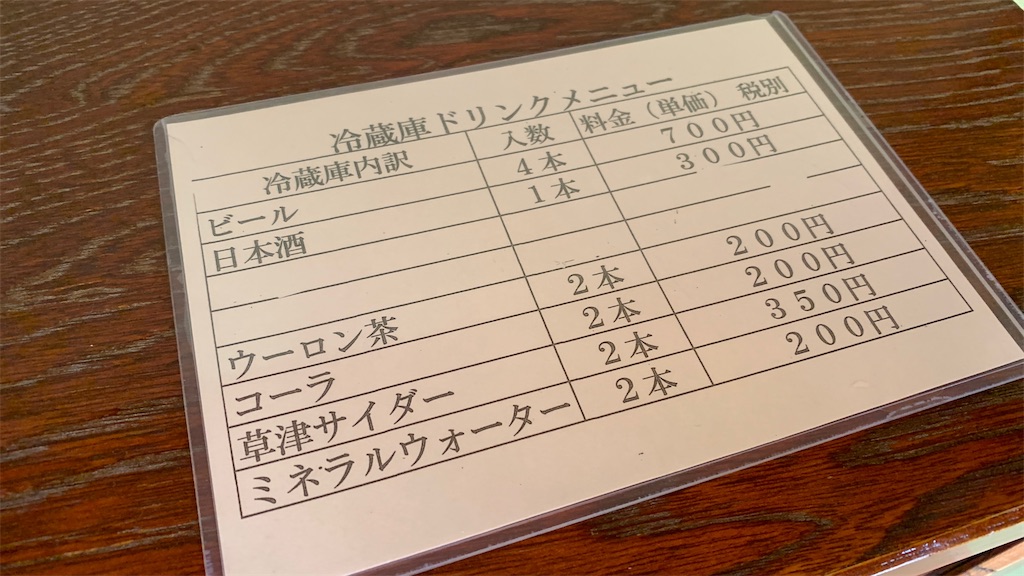 冷蔵庫ドリンクメニュー
冷蔵庫内訳 入数 料金（単価） 税別
ビール 4本 700円
日本酒 1本 300円
ウーロン茶 2本 200円
コーラ 2本 200円
草津サイダー 2本 350円
ミネラルウォーター 2本 200円